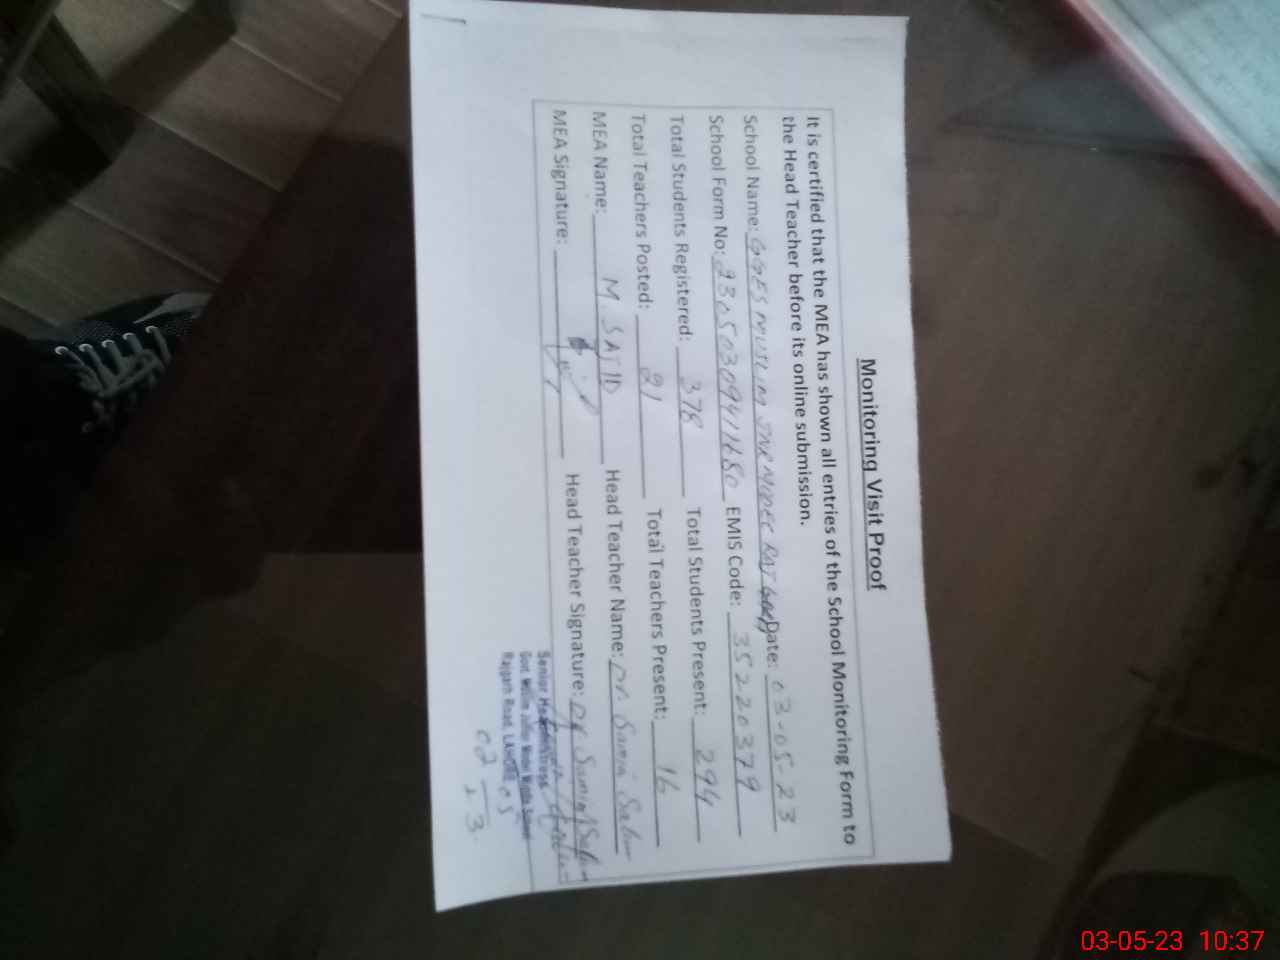 Monitoring Visit Proof
It is certified that the MEA has shown all entries of the School Monitoring Form to
the Head Teacher before its online submission.
School Name: GGES MUSLIM JNR MODEL RAJ GARH Date: 03-05-23
School Form No: EMIS Code: 35220379
Total Students Registered: 378 Total Students Present: 294
Total Teachers Posted: 21 Total Teachers Present: 16
MEA Name: M. SAJID Head Teacher Name: Dr. Samia
MEA Signature: Head Teacher Signature: Dr Samia
Senior Headmistress
Govt. Muslim Junior Model School
Rajgarh Road, LAHORE
03-05-23 10:37